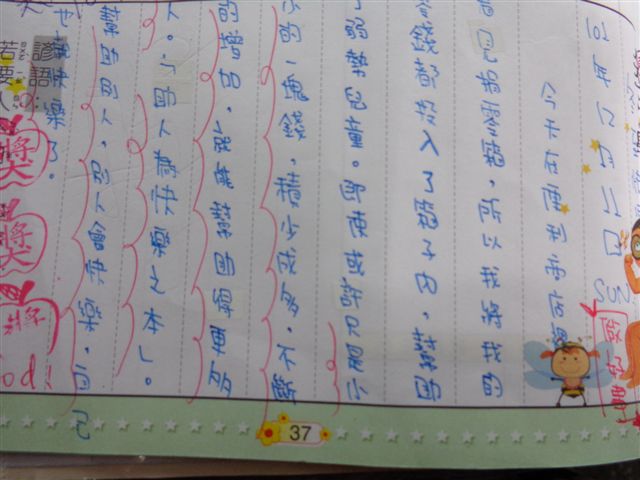 今天在便利商店看
見捐零錢箱,所以我將我的
零錢都投入了箱子內,幫助
了弱勢兒童。即使或許只是小
小的一塊錢,積少成多,不斷
的增加,就能幫助得更多
人。「助人為快樂之本」。
幫助別人,別人會快樂,自己
也就快樂了。
諺語
若要人
獎
獎
獎
37